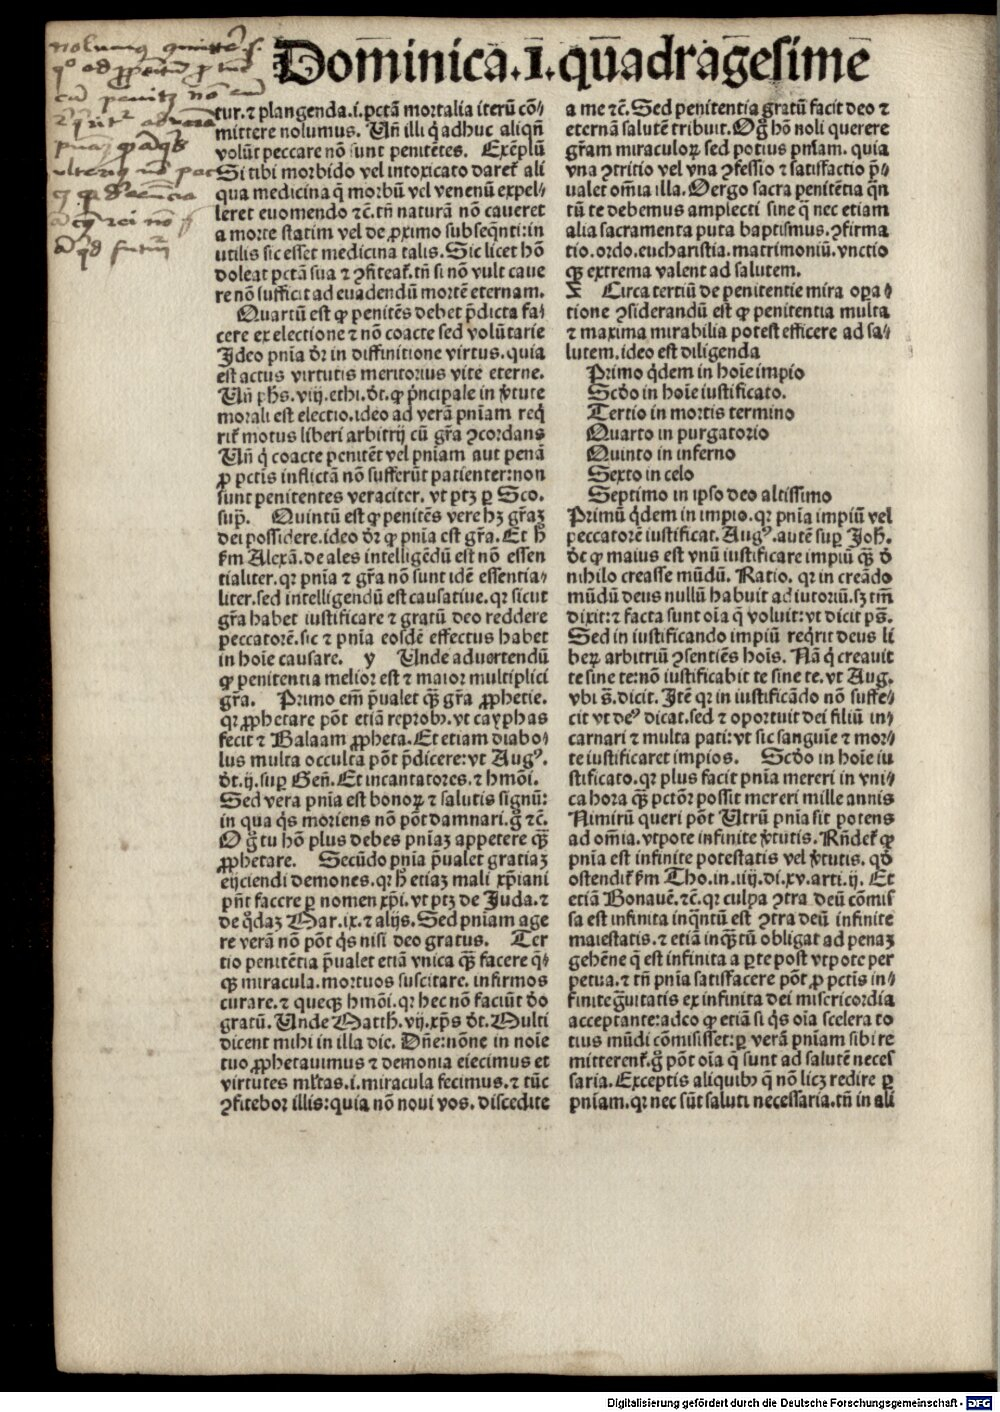 Dominica.I.quadragesime
tur.⁊ plangenda.i.pctā mortalia iterū cō-
mittere nolumus. Uñ illi q̇ adhuc aliqñ
volūt peccare nō sunt penitētes. Exēplū
Si tibi morbido vel intoxicato daret̄ ali
qua medicina q̄ morbū vel venenū expel-
leret euomendo ⁊c̄.tñ naturā nō caueret
a morte statim vel de ꝓximo subseq̄nti:in
utilis sic esset medicina talis. Sic licet hō
doleat pctā sua ⁊ ꝯfiteat̄.tñ si nō vult caue
re nō sufficit ad euadendū mortē eternam.
Quartū est ꝙ penitēs debet p̄dicta fa-
cere ex electione ⁊ nō coacte sed volūtarie
Ideo pnīa d̄r in diffinitione virtus.quia
est actus virtutis meritorius vite eterne.
Uñ pħs.viij.ethi.d̄t.ꝙ p̄ncipale in v̄tute
morali est electio.ideo ad verā pnīam req̇
rit̄ motus liberi arbitrij cū gr̄a ꝯcordans
Uñ q̇ coacte penitēt vel pnīam aut penā
ꝓ pctis inflictā nō sufferūt patienter:non
sunt penitentes veraciter. vt ptꝫ ꝑ Sco.
sup̄. Quintū est ꝙ penitēs vere hꝫ gr̄aꝫ
dei possidere.ideo d̄r ꝙ pnīa est gr̄a. Et ħ
ẜm Alexā.de ales intelligēdū est nō essen
tialiter.qꝛ pnīa ⁊ gr̄a nō sunt idē essentia-
liter.sed intelligendū est causatiue.qꝛ sicut
gr̄a habet iustificare ⁊ gratū deo reddere
peccatorē.sic ⁊ pnīa eosdē effectus habet
in hoīe causare. y Unde aduertendū
ꝙ penitentia melior est ⁊ maior multiplici
gr̄a. Primo em̄ p̄ualet qꝫ̄ gr̄a ꝓphetie.
qꝛ ꝓphetare pōt etiā reprobꝰ.vt cayphas
fecit ⁊ Balaam ꝓpheta.Et etiam diabo-
lus multa occulta pōt p̄dicere:vt Augꝰ.
d̄t.ij.suꝑ Geñ.Et incantatores.⁊ hmōi.
Sed vera pnīa est bonoꝝ ⁊ salutis signū:
in qua q̇s moriens nō pōt damnari.g̊ ⁊c̄.
O g̊ tu hō plus debes pnīaꝫ appetere qꝫ̄
ꝓphetare. Secūdo pnīa p̄ualet gratiaꝫ
eijciendi demones.qꝛ ħ etiaꝫ mali xp̄iani
pñt facere ꝑ nomen xp̄i.vt ptꝫ de Juda.⁊
de q̇dāꝫ Mar.ix.⁊ alijs.Sed pnīam age
re verā nō pōt q̇s nisi deo gratus. Ter
tio penitētia p̄ualet etiā vnica qꝫ̄ facere q̄-
qꝫ miracula.mortuos suscitare. infirmos
curare.⁊ queqꝫ hmōi.qꝛ hec nō faciūt d̄o
gratū. Unde Matth̄.vij.xp̄s d̄t.Multi
dicent mihi in illa die. Dñe:nōne in noīe
tuo ꝓphetauimus ⁊ demonia eiecimus et
virtutes ml̄tas.i.miracula fecimus.⁊ tūc
ꝯfitebor illis:quia nō noui vos. discedite
a me ⁊c̄. Sed penitentia gratū facit deo ⁊
eternā salutē tribuit. O g̊ hō noli querere
gr̄am miraculoꝝ sed potius pnīam. quia
vna ꝯtritio vel vna ꝯfessio ⁊ satisfactio p̄-
ualet om̄ia illa. O ergo sacra penitētia q̄n
tū te debemus amplecti sine q̄ nec etiam
alia sacramenta puta baptismus. ꝯfirma
tio.ordo.eucharistia.matrimoniū.vnctio
qꝫ extrema valent ad salutem.
z Circa tertiū de penitentie mira oꝑa-
tione ꝯsiderandū est ꝙ penitentia multa
⁊ maxima mirabilia potest efficere ad sa-
lutem.ideo est diligenda
Primo q̇dem in hoīe impio
Sc̄do in hoīe iustificato.
Tertio in mortis termino
Quarto in purgatorio
Quinto in inferno
Sexto in celo
Septimo in ipso deo altissimo
Primū q̇dem in impio.qꝛ pnīa impiū vel
peccatorē iustificat. Augꝰ.autē suꝑ Joh̄.
d̄t ꝙ maius est vnū iustificare impiū qꝫ̄ d̄
nihilo creasse mūdū. Ratio. qꝛ in creādo
mūdū deus nullū habuit adiutoriū.sꝫ tm̄
dixit:⁊ facta sunt oīa q̄ voluit:vt dicit ps̄.
Sed in iustificando impiū req̇rit deus li
beꝝ arbitriū ꝯsentiēs hoīs. Nā q̇ creauit
te sine te:nō iustificabit te sine te.vt Aug.
vbi s̄.dicit. Itē qꝛ in iustificādo nō suffe-
cit vt deꝰ dicat.sed ⁊ oportuit dei filiū in-
carnari ⁊ multa pati:vt sic sanguīe ⁊ mor-
te iustificaret impios. Sc̄do in hoīe iu
stificato.qꝛ plus facit pnīa mereri in vni-
ca hora qꝫ̄ pctōr possit mereri mille annis
Nimirū queri pōt Utrū pnīa sit potens
ad om̄ia.vtpote infinite v̄tutis. Rñdet̄ ꝙ
pnīa est infinite potestatis vel v̄tutis. qd̄
ostendit̄ ẜm Tho.in.iiij.di.xv.arti.ij. Et
etiā Bonauē.⁊c̄.qꝛ culpa ꝯtra deū cōmis
sa est infinita inq̄ntū est ꝯtra deū infinite
maiestatis.⁊ etiā inqꝫ̄tū obligat ad penaꝫ
gehēne q̄ est infinita a ꝑte post vtpote per
petua.⁊ tñ pnīa satisfacere pōt ꝓ pctis in-
finite g̊uitatis ex infinita dei misericordia
acceptante:adeo ꝙ etiā si q̇s oīa scelera to
tius mūdi cōmisisset:ꝑ verā pnīam sibi re
mitterent̄.g̊ pōt oīa q̄ sunt ad salutē neces
saria. Exceptis aliquibꝰ q̄ nō licꝫ redire ꝑ
pnīam.qꝛ nec sūt saluti necessaria.tñ in ali
Digitalisierung gefördert durch die Deutsche Forschungsgemeinschaft - DFG